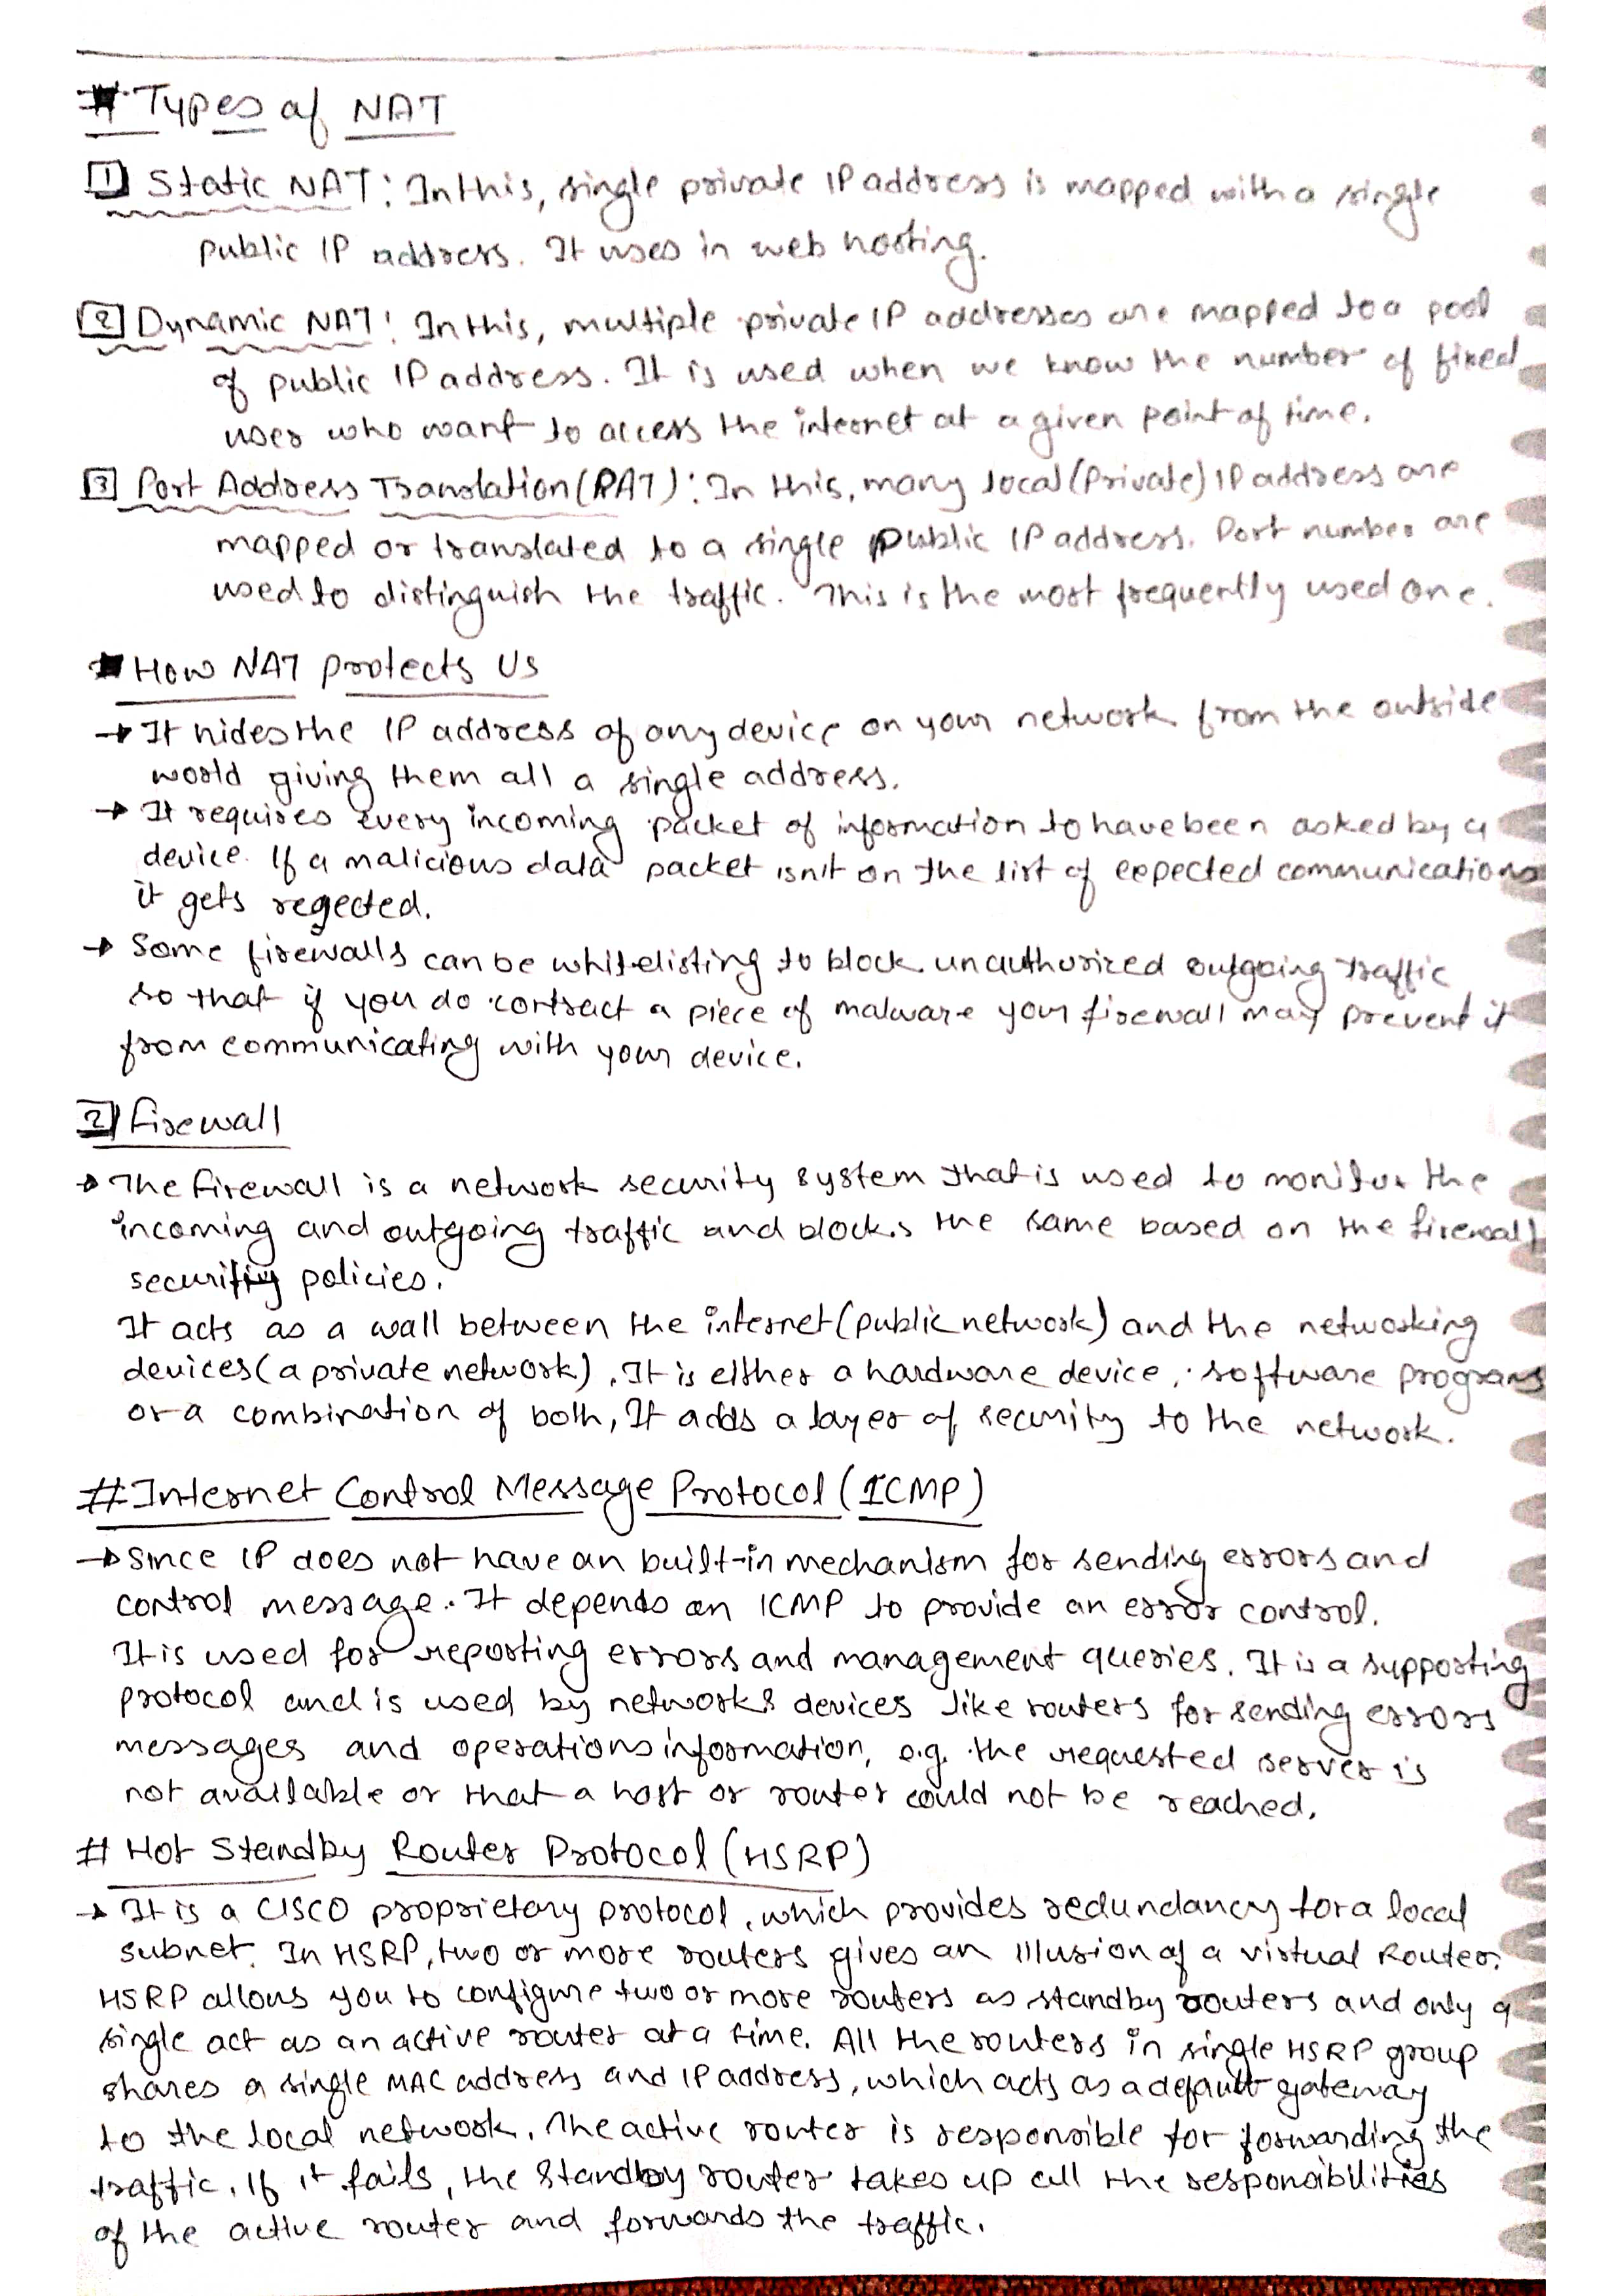 # Types of NAT
1 Static NAT: In this, single private IP address is mapped with a single
public IP address. It uses in web hosting.
2 Dynamic NAT: In this, multiple private IP addresses are mapped to a pool
of public IP address. It is used when we know the number of fixed
user who want to access the internet at a given point of time.
3 Port Address Translation (PAT): In this, many local (Private) IP address are
mapped or translated to a single public IP address. Port number are
used to distinguish the traffic. This is the most frequently used one.
How NAT protects Us
→ It hides the IP address of any device on your network from the outside
world giving them all a single address.
→ It requires every incoming packet of information to have been asked by a
device. If a malicious data packet isn't on the list of expected communications
it gets regected.
→ Some firewalls can be whitelisting to block unauthorized outgoing traffic
so that if you do contract a piece of malware your firewall may prevent it
from communicating with your device.
2 Firewall
→ The firewall is a network security system that is used to monitor the
incoming and outgoing traffic and blocks the same based on the firewall
security policies.
It acts as a wall between the internet (public network) and the networking
devices (a private network). It is either a hardware device, software program
or a combination of both, It adds a layer of security to the network.
# Internet Control Message Protocol (ICMP)
→ Since IP does not have an built-in mechanism for sending errors and
control message. It depends on ICMP to provide an error control.
It is used for reporting errors and management queries. It is a supporting
protocol and is used by networks devices like routers for sending errors
messages and operations information, e.g. the requested server is
not available or that a host or router could not be reached.
# Hot Standby Router Protocol (HSRP)
→ It is a CISCO proprietary protocol, which provides redundancy for a local
subnet. In HSRP, two or more routers gives an illusion of a virtual Router.
HSRP allows you to configure two or more routers as standby routers and only a
single act as an active router at a time. All the routers in single HSRP group
shares a single MAC address and IP address, which acts as a default gateway
to the local network. The active router is responsible for forwarding the
traffic. If it fails, the Standby router takes up all the responsibilities
of the active router and forwards the traffic.